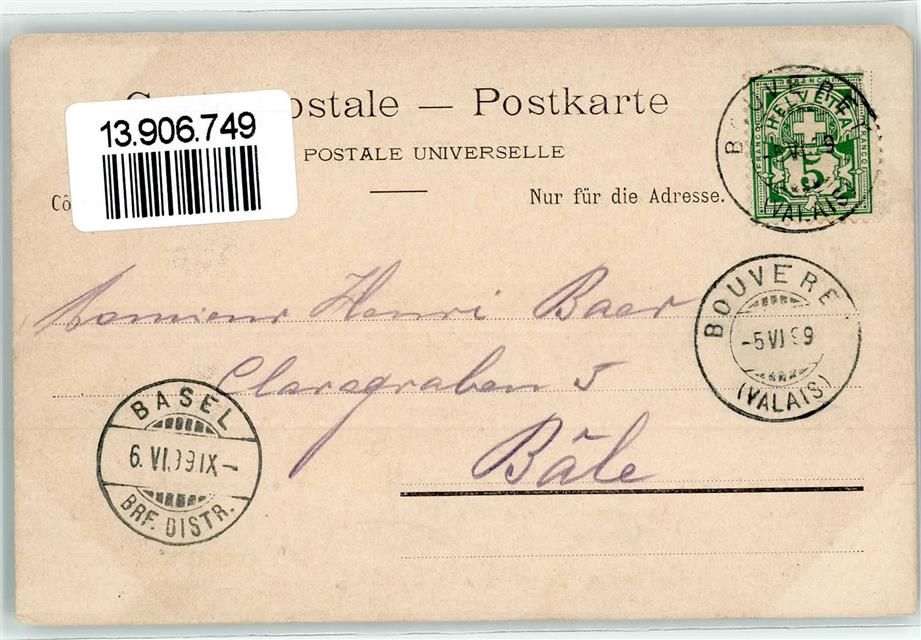 13.906.749
ostale — Postkarte
POSTALE UNIVERSELLE
Cô
Nur für die Adresse.
FRANCO
HELVETIA
FRANCO
FRANCO
5
(VALAIS)
BOUVERE
-5 VI 99
(VALAIS)
Monsieur Henri Baer
Claragraben 5
Bâle
BASEL
6. VI.99.IX-
BRF. DISTR.